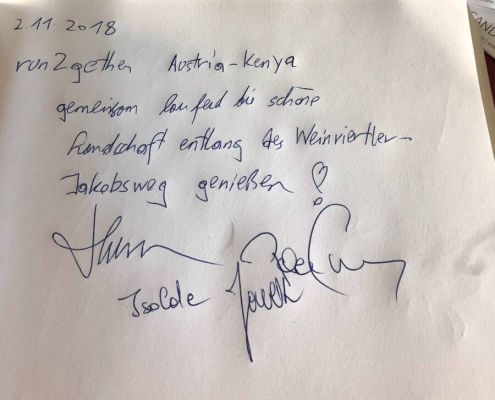 2.11.2018
run2gether Austria-Kenya
gemeinsam laufend die schöne
Landschaft entlang des Weinviertler-
Jakobsweg genießen !
Isolde